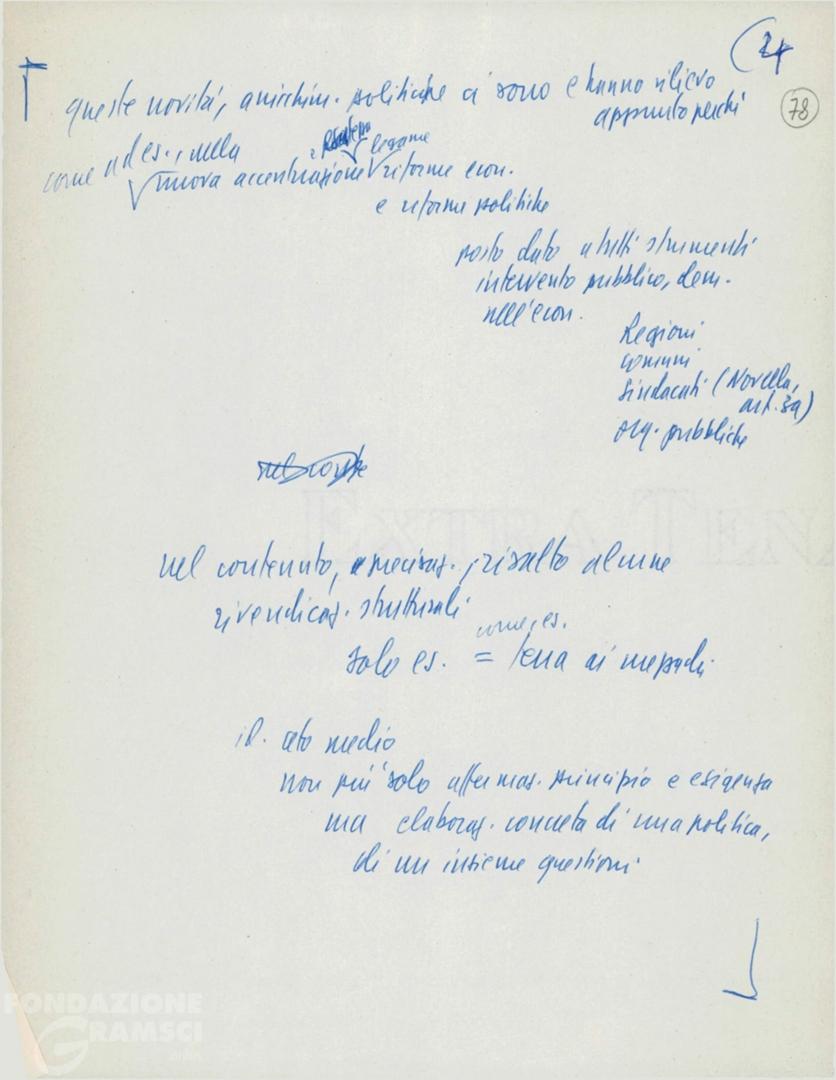 24
78
queste novità, arricchim. politiche ci sono e hanno rilievo
appunto perché
come ad es., nella
legame
nuova accentuazione riforme econ.
e riforme politiche
posto dato a tutti strumenti
intervento pubblico, dem.
nell'econ.
Regioni
comuni
sindacati (Novella,
art. 39)
org. pubbliche
nel contenuto, precisaz., risalto alcune
rivendicaz. strutturali
come, es.
solo es. = terra ai mezzadri
id. ceto medio
non più solo affermaz. principio e esigenza
ma elaboraz. concreta di una politica,
di un insieme questioni
EXTRA TEN
FONDAZIONE
GRAMSCI